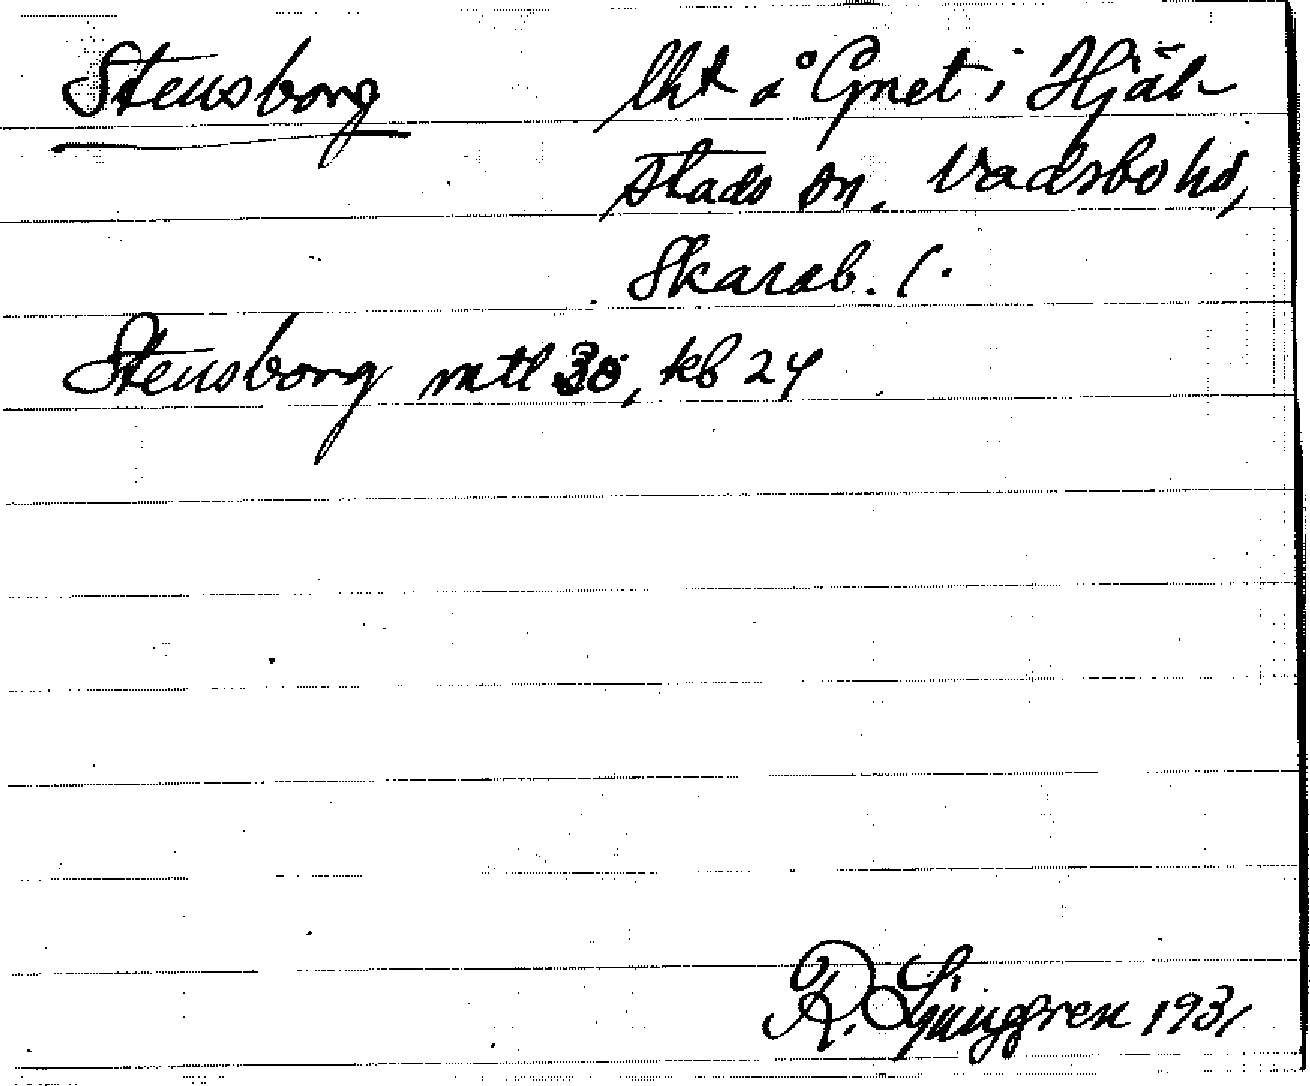 Stensborg lht å Gnet i Hjäl-
stads sn. Vadsbo hd,
Skarab. l.
Stensborg mtl 30, kb 24
R. Ljunggren 1931